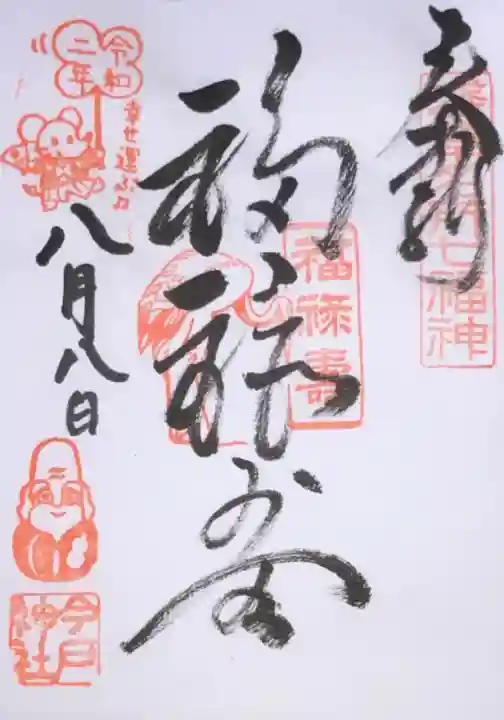 奉拝
七福神
福禄寿
福禄寿
令和
二年
幸せ運ぶ
八月八日
今戸
神社